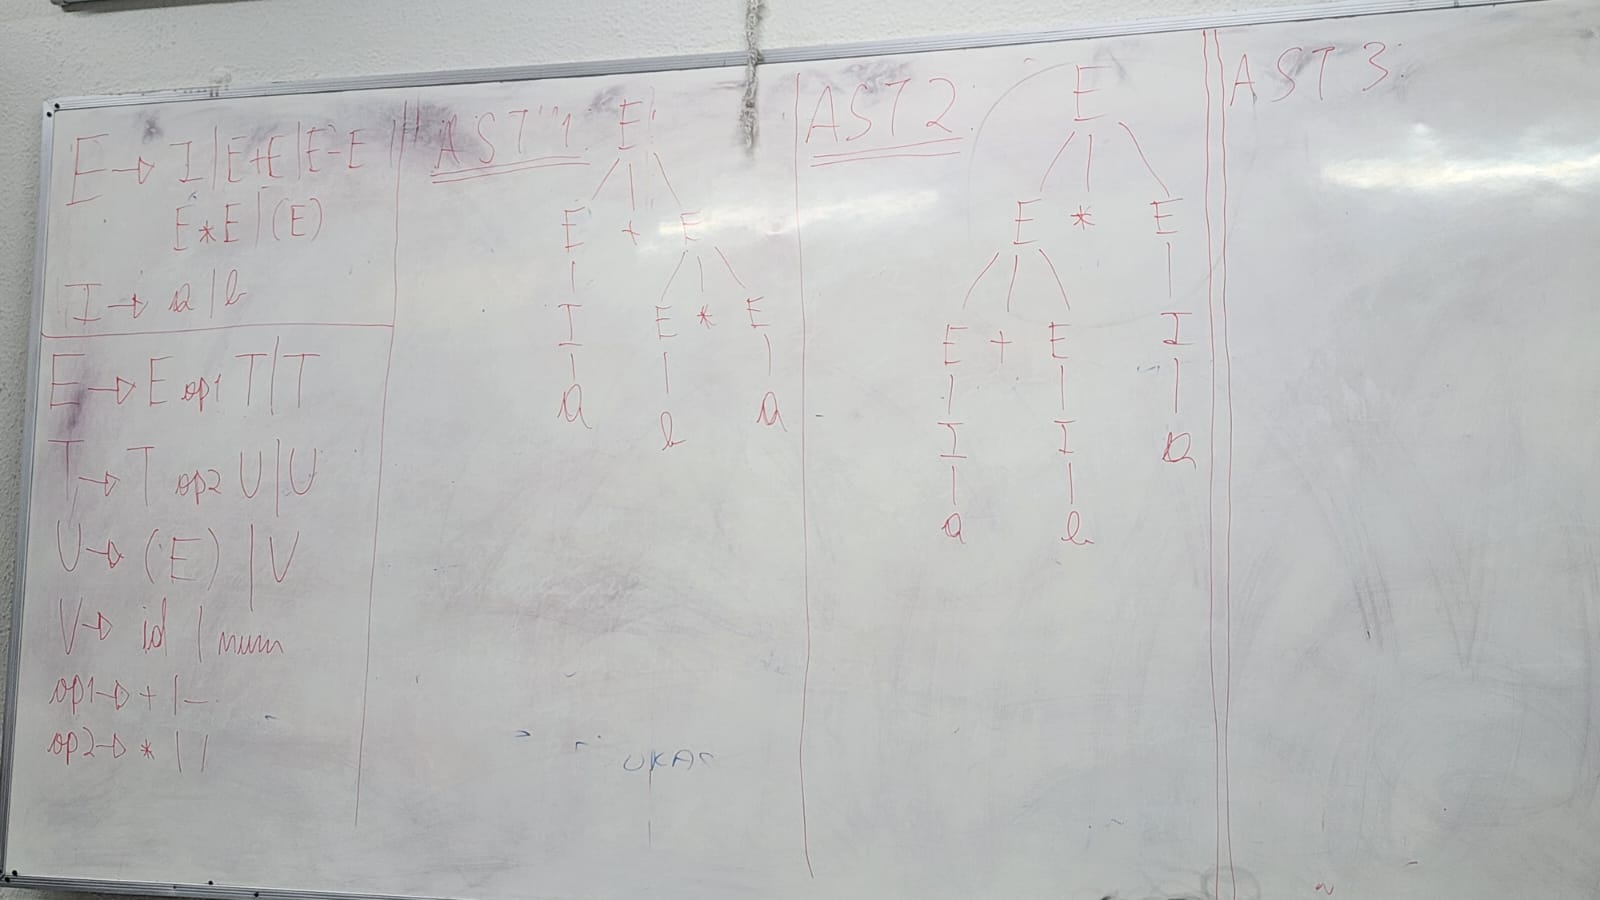 E → I | E+E | E-E |
E*E | (E)
I → a | b
E → E op1 T | T
T → T op2 U | U
U → (E) | V
V → id | num
op1 → + | -
op2 → * | /
AST 1:
E
E + E
I E * E
a b a
AST 2
E
E * E
E + E I
I I a
a b
AST 3: